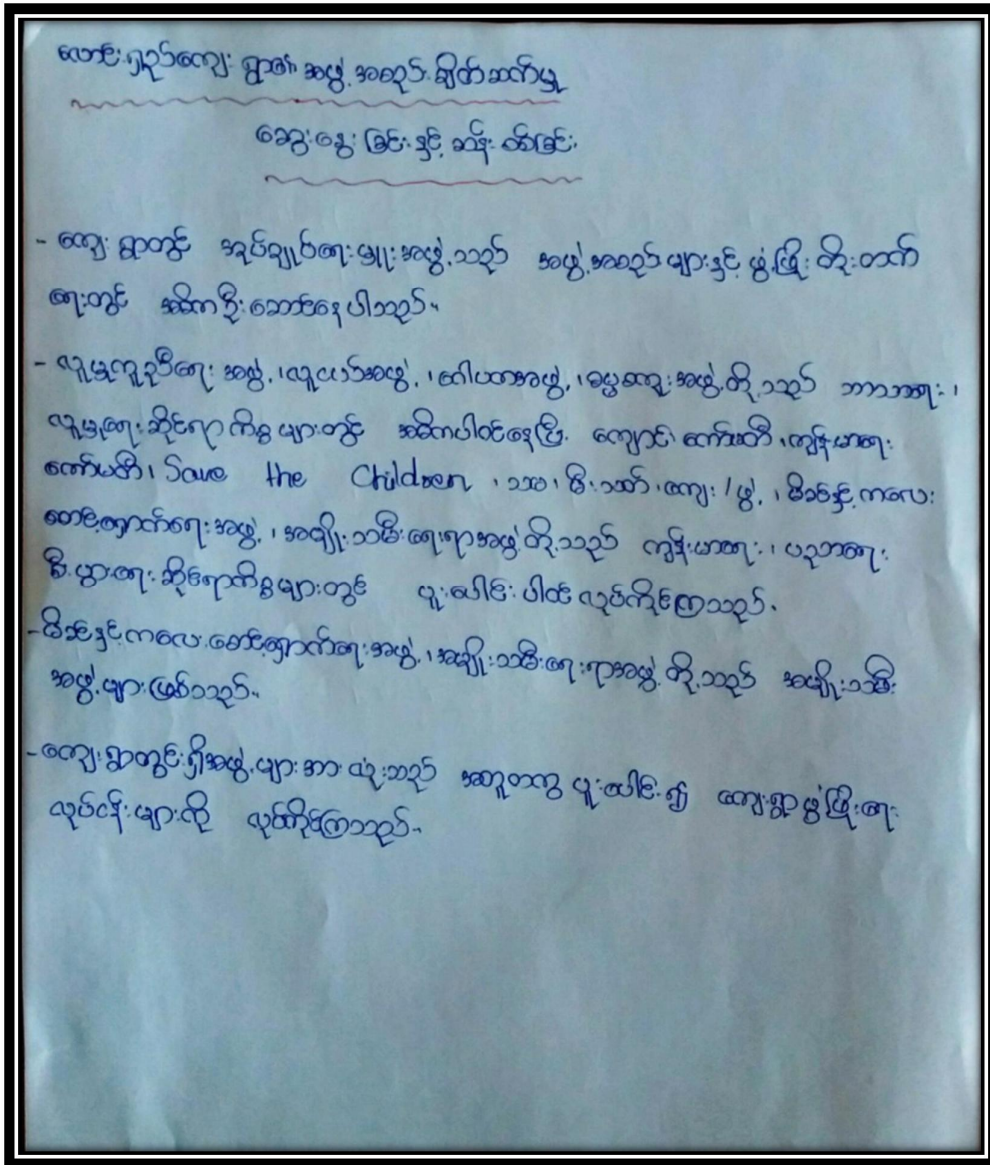 လောင်းရှည်ကျေးရွာ၏ အဖွဲ့အစည်းချိတ်ဆက်မှု
ဆွေးနွေးခြင်းနှင့် ဆန်းစစ်ခြင်း
- ကျေးရွာတွင် အုပ်ချုပ်ရေးမှူးအဖွဲ့သည် အဖွဲ့အစည်းများနှင့် ဖွံ့ဖြိုးတိုးတက်
ရေးတွင် အဓိကဦးဆောင်နေပါသည်။
- လူမှုကူညီရေးအဖွဲ့၊ လူငယ်အဖွဲ့၊ ဂေါပကအဖွဲ့၊ ဓမ္မစကူးအဖွဲ့တို့သည် ဘာသာရေး၊
လူမှုရေးဆိုင်ရာကိစ္စများတွင် အဓိကပါဝင်နေပြီး ကျောင်းကော်မတီ၊ ကျန်းမာရေး
ကော်မတီ၊ Save the Children ၊ သစ၊ မီးသတ်၊ ကျေး/ဖွံ့၊ မိခင်နှင့်ကလေး
စောင့်ရှောက်ရေးအဖွဲ့၊ အမျိုးသမီးရေးရာအဖွဲ့တို့သည် ကျန်းမာရေး၊ ပညာရေး
စီးပွားရေးဆိုင်ရာကိစ္စများတွင် ပူးပေါင်းပါဝင်လုပ်ကိုင်ကြသည်။
- မိခင်နှင့်ကလေးစောင့်ရှောက်ရေးအဖွဲ့၊ အမျိုးသမီးရေးရာအဖွဲ့တို့သည် အမျိုးသမီး
အဖွဲ့များဖြစ်သည်။
- ကျေးရွာတွင်းရှိအဖွဲ့များအားလုံးသည် အတူတကွပူးပေါင်း၍ ကျေးရွာဖွံ့ဖြိုးရေး
လုပ်ငန်းများကို လုပ်ကိုင်ကြသည်။